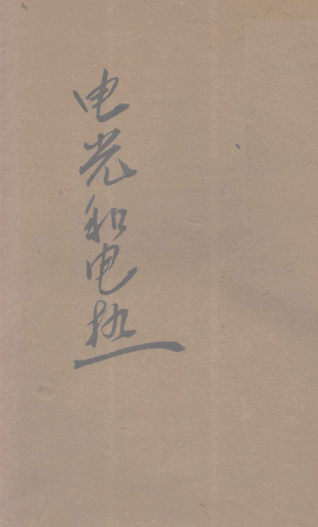 电光和电热